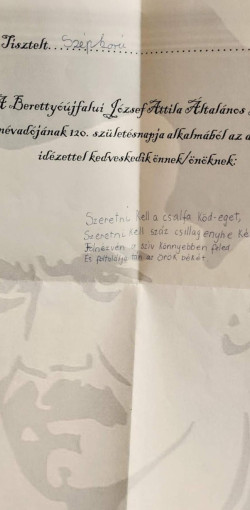 Tisztelt....Szépkorú
A Berettyóújfalui József Attila Általános
névadójának 120. születésnapja alkalmából az a
idézettel kedveskedik önnek/önöknek:
Szeretni kell a csalfa köd-eget,
Szeretni kell száz csillag enyhe ké
Fölnézvén a szív könnyebben feled
És feltalálja az örök békét